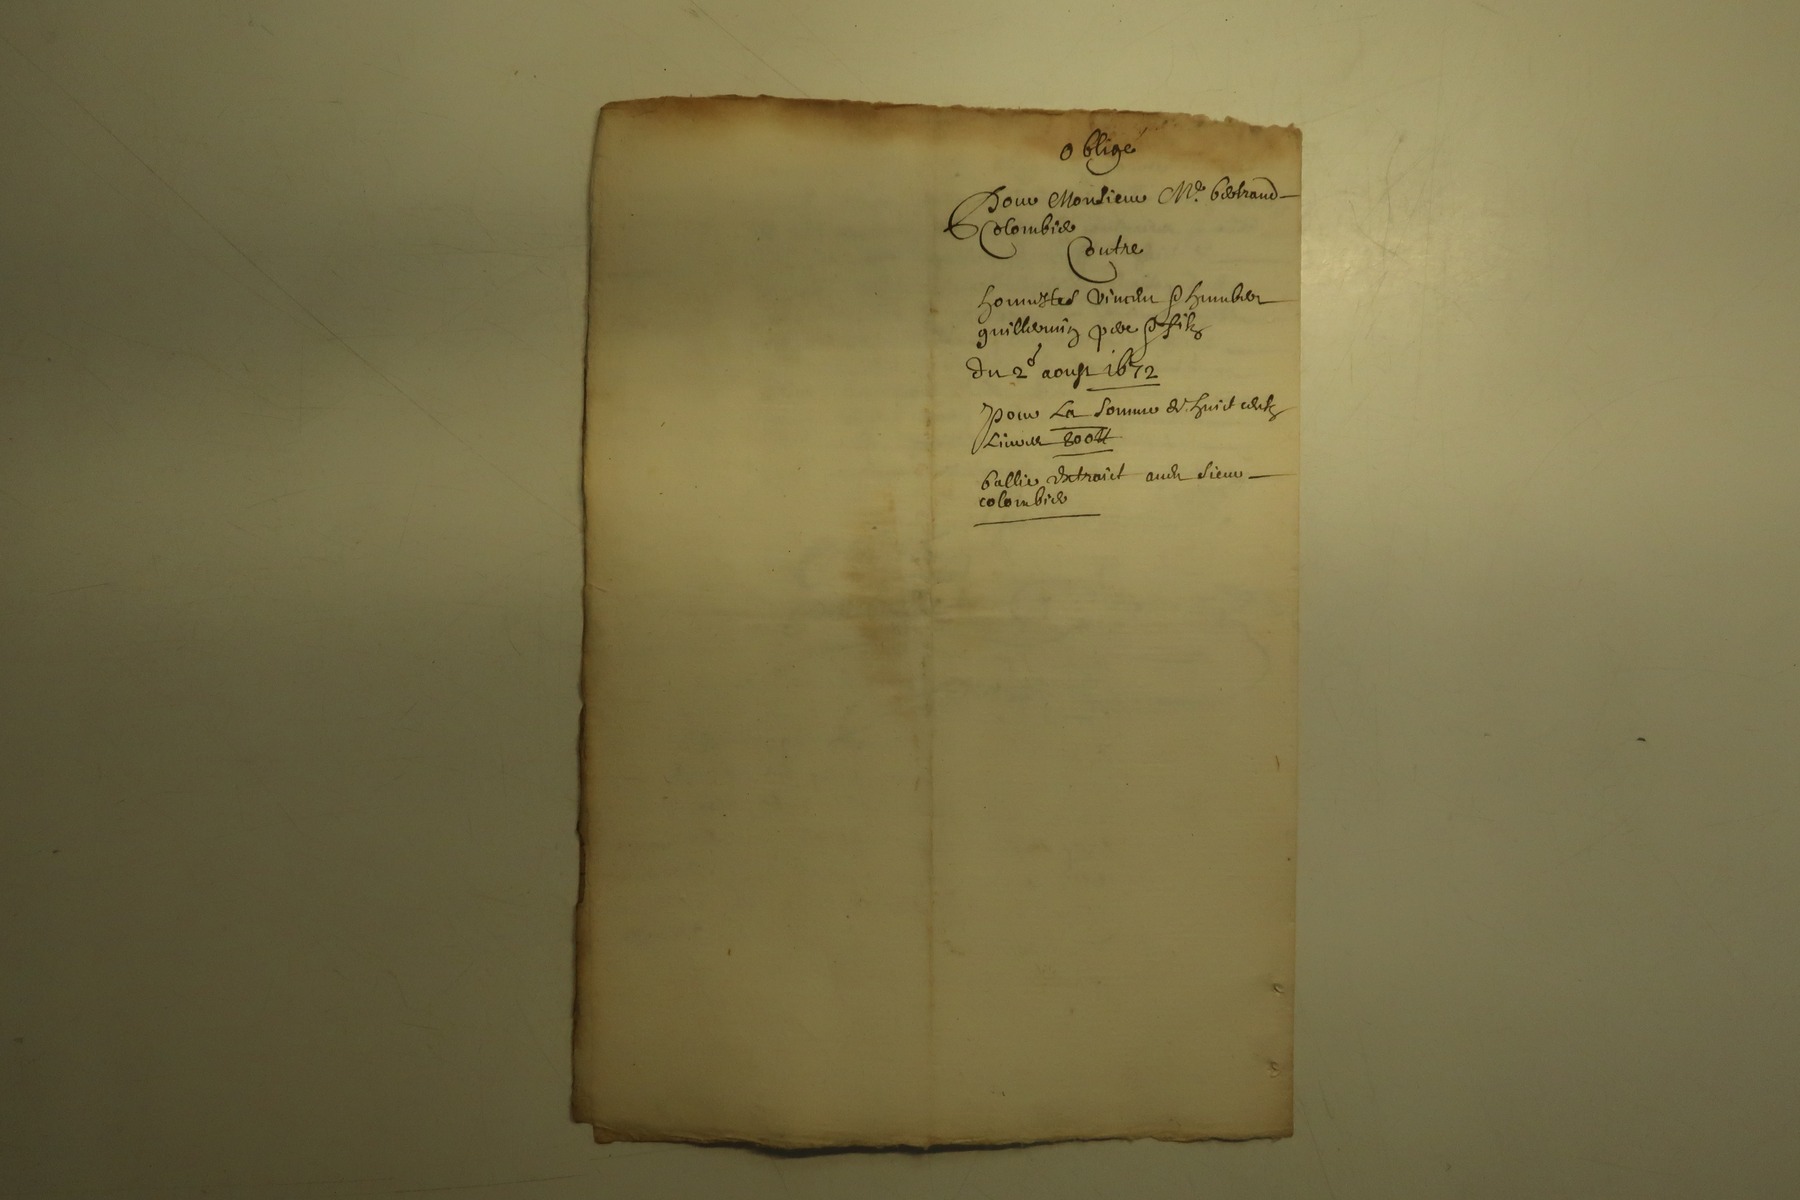 Obligé
Pour Monsieur Me. bertrand
Colombier
Contre
honnestes Vincen & humber
guillermin pere & filz
du 2e aoust 1672
pour La Somme de huict centz
Livres 800 ₶
ballie extraict aud Sieur
colombier